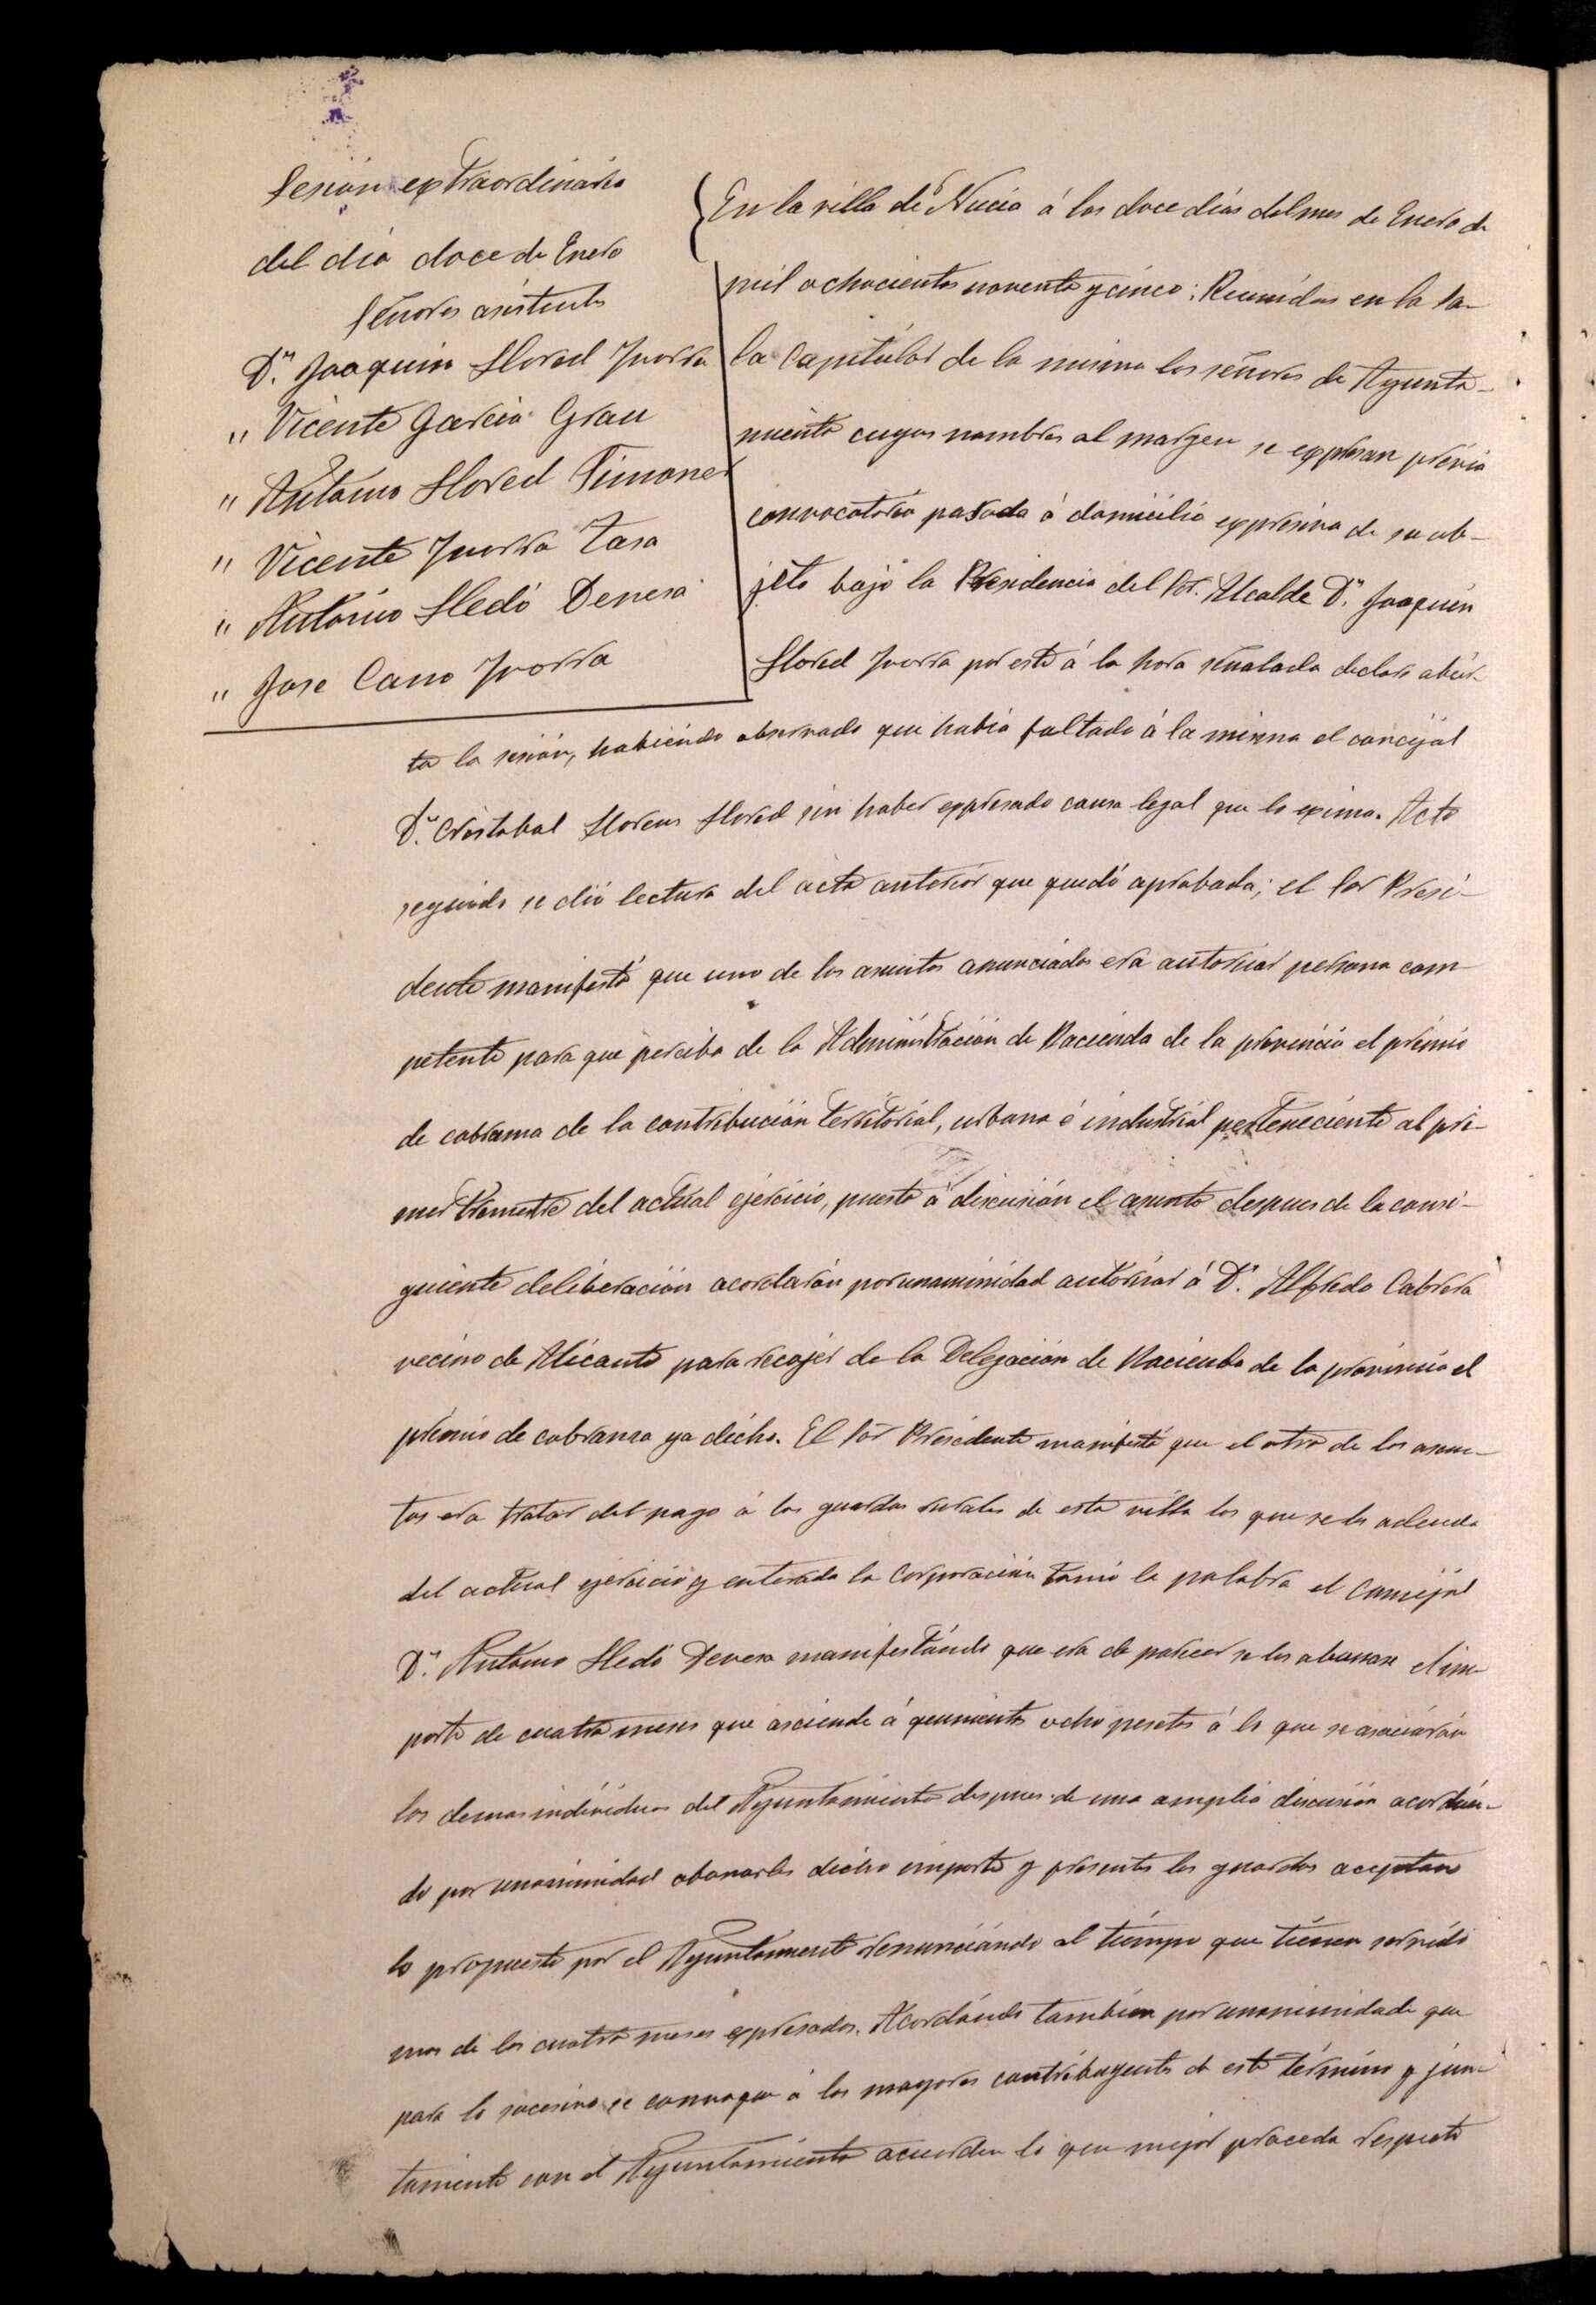 Sesión extraordinaria
del día doce de Enero
Señores asistentes
Dn. Joaquin Llored Yvorra
" Vicente Garcia Grau
" Antonio Llored Timoner
" Vicente Yvorra Tasa
" Antonio Lledó Devesa
" Jose Cano Yvorra
En la villa de Nucia á los doce días del mes de Enero de
mil ochocientos noventa y cinco: Reunidos en la sa-
la Capitular de la misma los señores de Ayunta-
miento cuyos nombres al margen se expresan previa
convocatoria pasada á domicilio expresiva de su ob-
jeto bajo la Presidencia del Sor. Alcalde Dn. Joaquin
Llored Yvorra por este á la hora señalada declaro abier-
ta la sesión, habiendo observado que habia faltado á la misma el concejal
Dn. Cristobal Llorens Llored sin haber expresado causa legal que lo exima. Acto
seguido se dió lectura del acta anterior que quedó aprobada; el Sor Presi-
dente manifestó que uno de los asuntos anunciados era autorisar persona com-
petente para que perciba de la Administración de Hacienda de la provincia el premio
de cobransa de la contribución territorial, urbana é industrial perteneciente al pri-
mer trimestre del actual ejercicio, puesto á discusión el asunto despues de la consi-
guiente deliberación acordarón por unanimidad autorisar á Dn. Alfredo Cabrera
vecino de Alicante para recojer de la Delegación de Hacienda de la provincia el
premio de cobransa ya dicho. El Sor Presidente manifestó que el otro de los asun-
tos era tratar del pago á los guardas rurales de esta villa los que se les adeuda
del actual ejercicio y enterada la Corporación tomó la palabra el Concejal
Dn. Antonio Lledó Devesa manifestándo que era de parecer se les abonase el im-
porte de cuatro meses que asciende á quinientas ocho pesetas á lo que se asociarón
los demas individuos del Ayuntamiento despues de una amplia discusión acordan-
do por unanimidad abonarles dicho importe y presentes los guardas aceptan
lo propuesto por el Ayuntamiento renunciándo al tiempo que tienen servido
mas de los cuatro meses expresados. Acordándo tambien por unanimidad que
para lo sucesivo se convoque á los mayores contribuyentes de este término y jun-
tamente con el Ayuntamiento acuerden lo que mejor proceda respecto